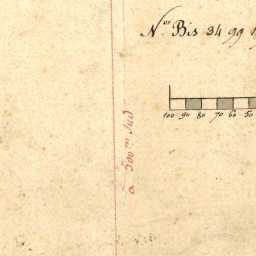 N.os Bis 34 99 
100 90 80 70 60 50
à 500 m Sud